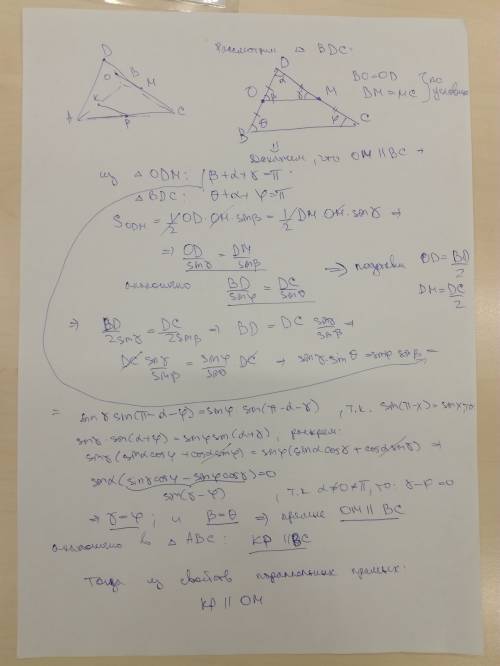 Рассмотрим △ BDC:
D
O
B
M
K
A
P
C
D
α
O
β
γ
M
B
θ
φ
C
BO=OD
DM=MC
} по условию
Докажем, что OM || BC →
из △ ODM: β+α+γ=π
△ BDC: θ+α+φ=π
S_ODM = 1/2 OD·OM·sinβ = 1/2 DM·OM·sinγ →
⇒ OD/sinγ = DM/sinβ
аналогично BD/sinφ = DC/sinθ ⇒ подставим OD=BD/2
DM=DC/2
⇒ BD/2sinγ = DC/2sinβ ⇒ BD = DC sinγ/sinβ →
DC sinγ/sinβ = sinφ/sinθ DC → sinγ·sinθ=sinφ sinβ =
= sinγ sin(π-α-φ)=sinφ sin(π-α-γ), т.к. sin(π-x)=sinx, то
sinγ·sin(α+φ)=sinφ sin(α+γ), раскроем:
sinγ(sinα cosφ + cosα sinφ) = sinφ(sinα cosγ + cosα sinγ) →
sinα(sinγ cosφ - sinφ cosγ)=0
sin(γ-φ), т.к. α≠0≠π, то: γ-φ=0
⇒ γ=φ; и β=θ ⇒ прямые OM || BC
аналогично в △ ABC: KP || BC
Тогда из свойств параллельных прямых:
KP || OM